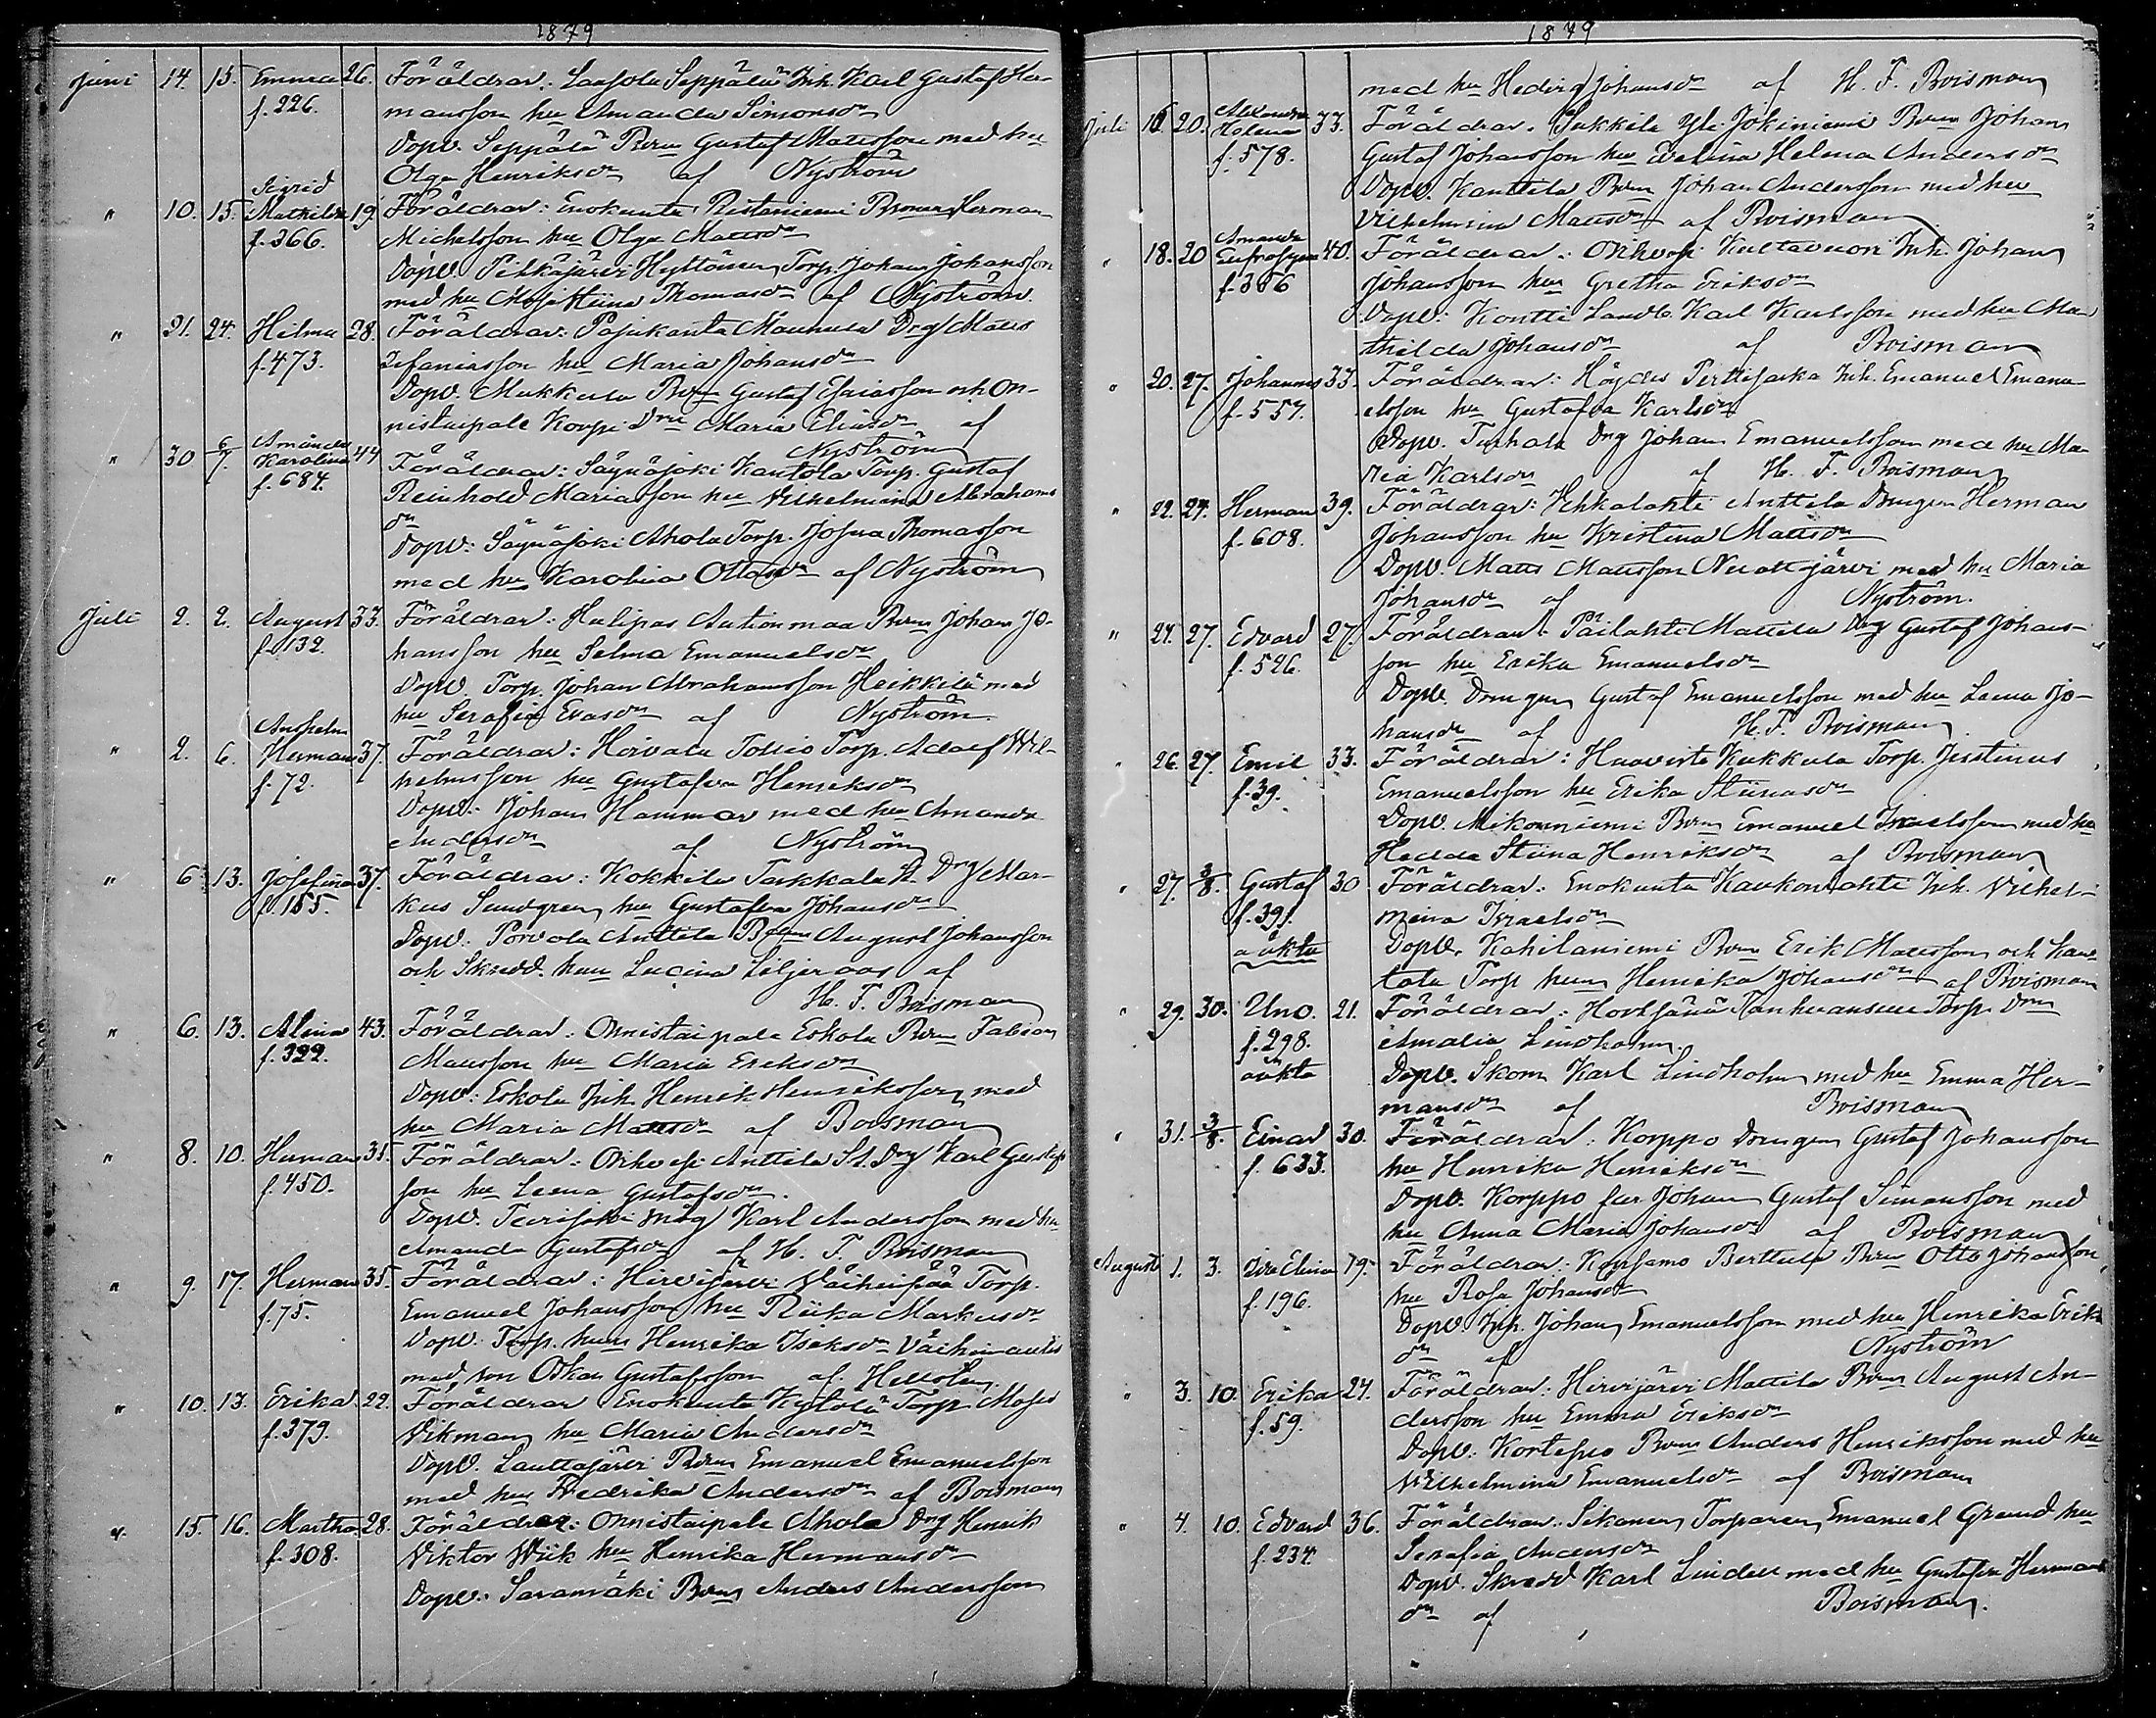 1879
Juni 14. 15. Emma 26. Föräldrar: Laajoki Seppälä Inh. Karl Gustaf Her-
f. 226. mansson hu Amanda Simonsdr
Dopv. Seppälä Bvn Gustaf Mattsson med hu
Olga Henriksdr af Nyström
Sigrid
" 10. 15. Mathilda 19. Föräldrar: Enokunta Ristaniemi Herman
f. 366. Michelsson hu Olga Mattsdr
Dopv. Pitkäjärvi Hyttönen Torp. Johan Johansson
med hu Maja Stiina Thomasdr af Nyström
" 21. 24. Hilma 28. Föräldrar: Pajukanta Mannula Drg Matts
f. 473. Zefaniasson hu Maria Johansdr
Dopv. Mukkula Bvn Gustaf Esaiasson och On-
nistaipale Korpi Maria af
Nyström
Amanda
" 30 6/7. Karolina 44 Föräldrar: Säynäjoki Kantola Torp. Gustaf
f. 684. Reinhold Mariasson hu Vilhelmina Abrahams
dr
Dopv: Säynäjoki Ahola Torp. Josua Thomasson
med hu Karolina Ottosdr af Nyström
Juli 2. 2. August 33. Föräldrar: Hulipas Antion maa Bvn Johan Jo-
f. 132. hansson hu Selma Emanuelsdr
Dopv. Torp. Johan Abrahamsson Heikkilä med
hu Serafia Evasdr af Nyström
Anshelm
" 2. 6. Herman 37. Föräldrar: Koivula Tollio Torp. Adolf Wil-
f. 72. helmsson hu Gustafva Henriksdr
Dopv: Johan Hammar med hu Amanda
Andersdr af Nyström
" 6 13. Josefina 37. Föräldrar: Kokkila Takkala St. Drg Mar-
f. 155. kus Sundgren hu Gustafva Johansdr
Dopv: Porvola Anttila Bvn August Johansson
och Skredd. hun Lucina Liljeroos af
H. F. Boisman
" 6. 13. Alina 43. Föräldrar: Onnistaipale Eskola Bvn Fabian
f. 322. Mattsson hu Maria Eriksdr
Dopv: Eskola Inh. Henrik Henriksson med
hu Maria Mattsdr af Boisman
" 8. 10. Herman 35. Föräldrar: Orihvesi Anttila St. Drg Karl Gustafs
f. 450. son hu Leena Gustafsdr.
Dopv. måg Karl Andersson med hu
Amanda Gustafsdr af H. F. Boisman
" 9. 17. Herman 35. Föräldrar: Hirvijärvi Vähinpää Torp.
f. 75. Emanuel Johansson hu Riika Markusdr
Dopv: Torp. hun Henrika Isaksdr
med son Oskar Gustafsson af Hellsten
" 10. 13. Erika 22. Föräldrar Enokunta Kytölä Torp. Moses
f. 379. Vikman hu Maria Andersdr
Dopv. Lauttajärvi Bvn Emanuel Emanuelsson
med hu Fredrika Andersdr af Boisman
" 15. 16. Martha 28. Föräldrar: Onnistaipale Ahola Drg Henrik
f. 308. Viktor Wiik hu Henrika Hermansdr
Dopv: Saramäki Bvn Anders Andersson
1879
med hu Hedvig Johansdr af H. F. Boisman
Alexandra
Juli 16 20. Helena 33. Föräldrar: Sukkila Yli Jokiniemi Bvn Johan
f. 578. Gustaf Johansson hu Evelina Helena Andersdr
Dopv. Kanttila Bvn Johan Andersson med hu
Vilhelmina Mattsdr af Boisman
Amanda
" 18. 20 Eufrosyna 40. Föräldrar: Orihvesi Kultavuori Inh. Johan
f. 386 Johansson hu Gretha Eriksdr
Dopv: Kontti Landb. Karl Karlsson med hu Ma
thilda Johansdr af Boisman
" 20. 27. Johannes 33. Föräldrar: Höydes Perttisaka Inh. Emanuel Emanu-
f. 557. elsson hu Gustafva Karlsdr
Dopv. Turhala Drg Johan Emanuelsson med hu Ma-
ria Karlsdr af H. F. Boisman
" 22. 24. Herman 39. Föräldrar: Vehkalahti Anttila Drngen Herman
f. 608. Johansson hu Kristina Mattsdr
Dopv. Matts Mattsson med hu Maria
Johansdr af Nyström.
" 24. 27. Edvard 27. Föräldrar: Päilahti Mattila Drg Gustaf Johans-
f. 526. son hu Erika Emanuelsdr
Dopv. Drngen Gustaf Emanuelsson med hu Leena Jo-
hansdr af H. F. Boisman
" 26. 27. Emil 33. Föräldrar: Haavisto Kukkula Torp. Justinus
f. 39. Emanuelsson hu Erika Stiinasdr
Dopv. Mikonniemi Bvn Emanuel Israelsson med hu
Hedda Stiina Henriksdr af Boisman
" 27. 3/8. Gustaf 30 Föräldrar: Enokunta Kaukonlahti Inh. Vilhel-
f. 391. mina Israelsdr
oäkta Dopv. Kahilaniemi Bvn Erik Mattsson och Kan
tola Torp hun Henrika Johansdr af Boisman
" 29. 30. Uno. 21. Föräldrar: Torp. Drn
f. 298. Amalia Lindholm.
oäkta Dopv. Skom Karl Lindholm med hu Emma Her-
mansdr af Boisman
" 31. 3/8. Einar 30. Föräldrar: Korppo Drngen Gustaf Johansson
f. 633. hu Henrika Henriksdr
Dopv. Korppo far Johan Gustaf Simonsson med
hu Anna Maria Johansdr af Boisman
Augusti 1. 3. Elina 19. Föräldrar: Berttula Bvn Otto Johansson
f. 196. hu Rosa Johansdr
Dopv. Inh. Johan Emanuelsson med hu Henrika Eriks
dr af Nyström
" 3. 10. Erika 24. Föräldrar: Hirvijärvi Mattila Bvn August An-
f. 59. dersson hu Emma Eriksdr
Dopv: Kortespo Bvn Anders Henriksson med hu
Wilhelmina Emanuelsdr af Boisman
" 4. 10. Edvard 36. Föräldrar: Sikanen Torparen Emanuel Grund hu
f. 234. Serafia Andersdr
Dopv. Skredd Karl Lindell med hu Gustafva Hermans
dr af Boisman.